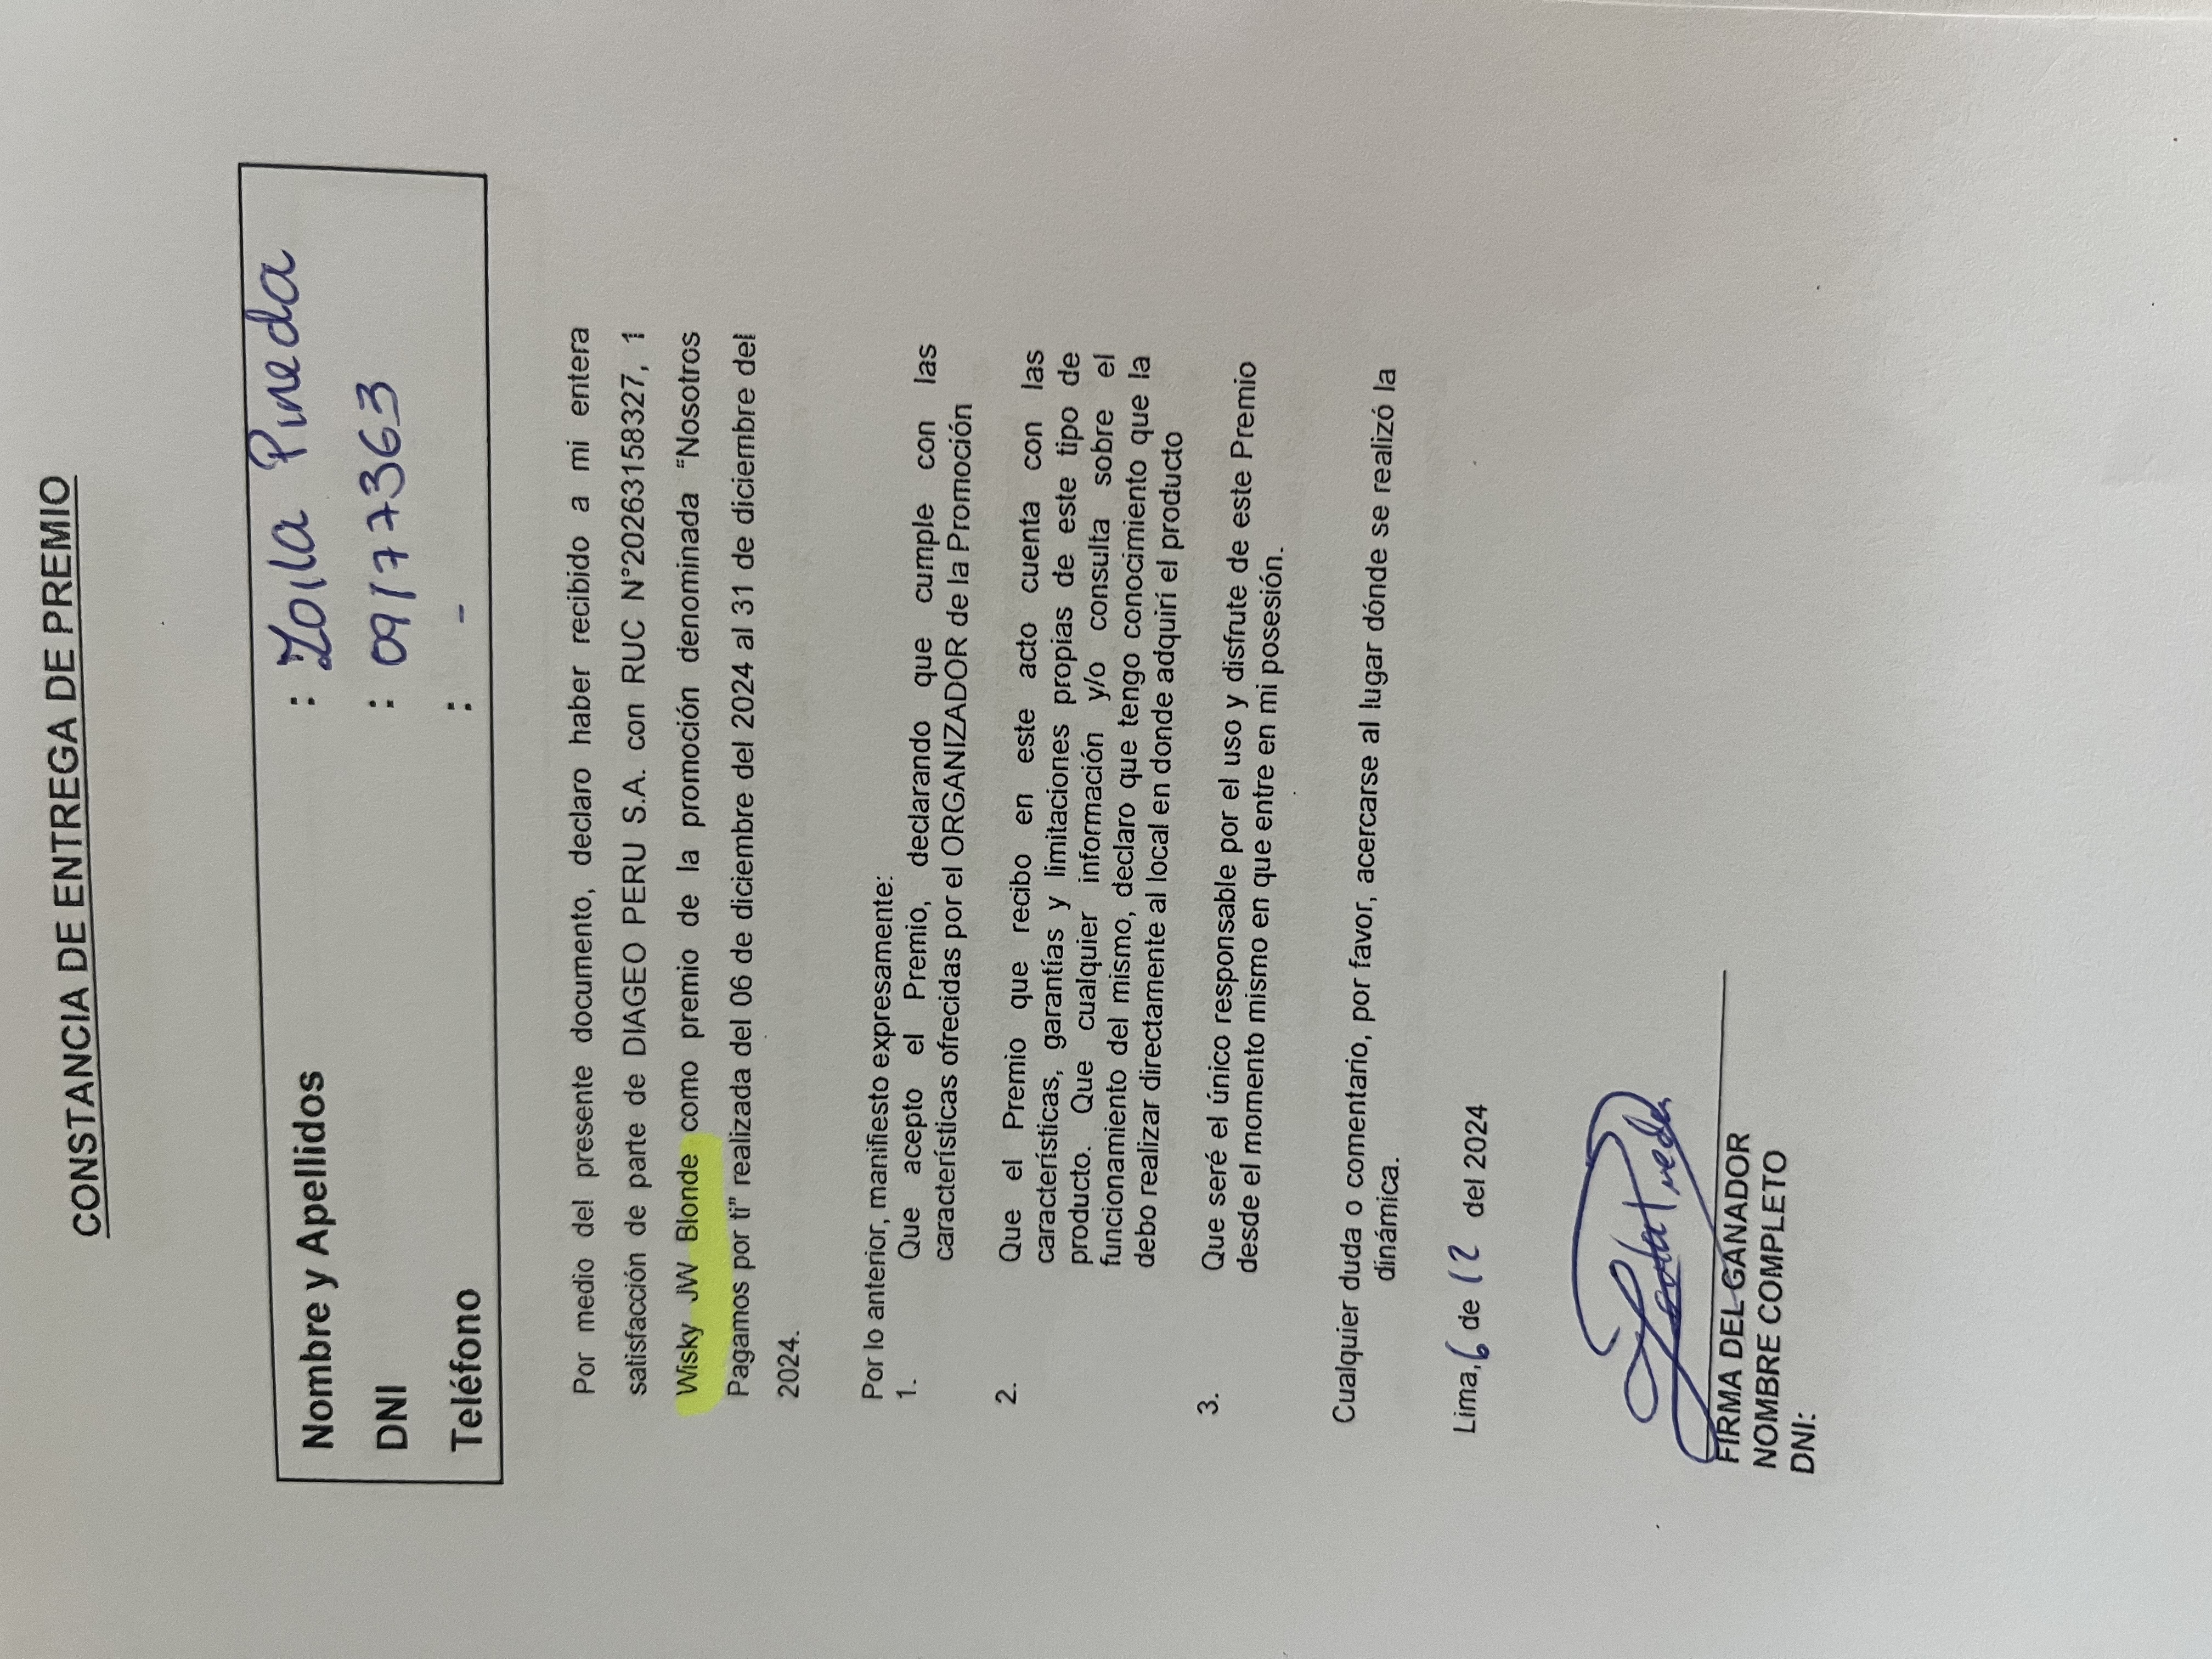 CONSTANCIA DE ENTREGA DE PREMIO
Nombre y Apellidos : Zoila Pineda
DNI : 09177363
Teléfono : -
Por medio del presente documento, declaro haber recibido a mi entera
satisfacción de parte de DIAGEO PERU S.A. con RUC N°20263158327, 1
Wisky JW Blonde como premio de la promoción denominada "Nosotros
Pagamos por ti" realizada del 06 de diciembre del 2024 al 31 de diciembre del
2024.
Por lo anterior, manifiesto expresamente:
1. Que acepto el Premio, declarando que cumple con las
características ofrecidas por el ORGANIZADOR de la Promoción
2. Que el Premio que recibo en este acto cuenta con las
características, garantías y limitaciones propias de este tipo de
producto. Que cualquier información y/o consulta sobre el
funcionamiento del mismo, declaro que tengo conocimiento que la
debo realizar directamente al local en donde adquirí el producto
3. Que seré el único responsable por el uso y disfrute de este Premio
desde el momento mismo en que entre en mi posesión.
Cualquier duda o comentario, por favor, acercarse al lugar dónde se realizó la
dinámica.
Lima, 6 de 12 del 2024
Zoila Pineda
FIRMA DEL GANADOR
NOMBRE COMPLETO
DNI: